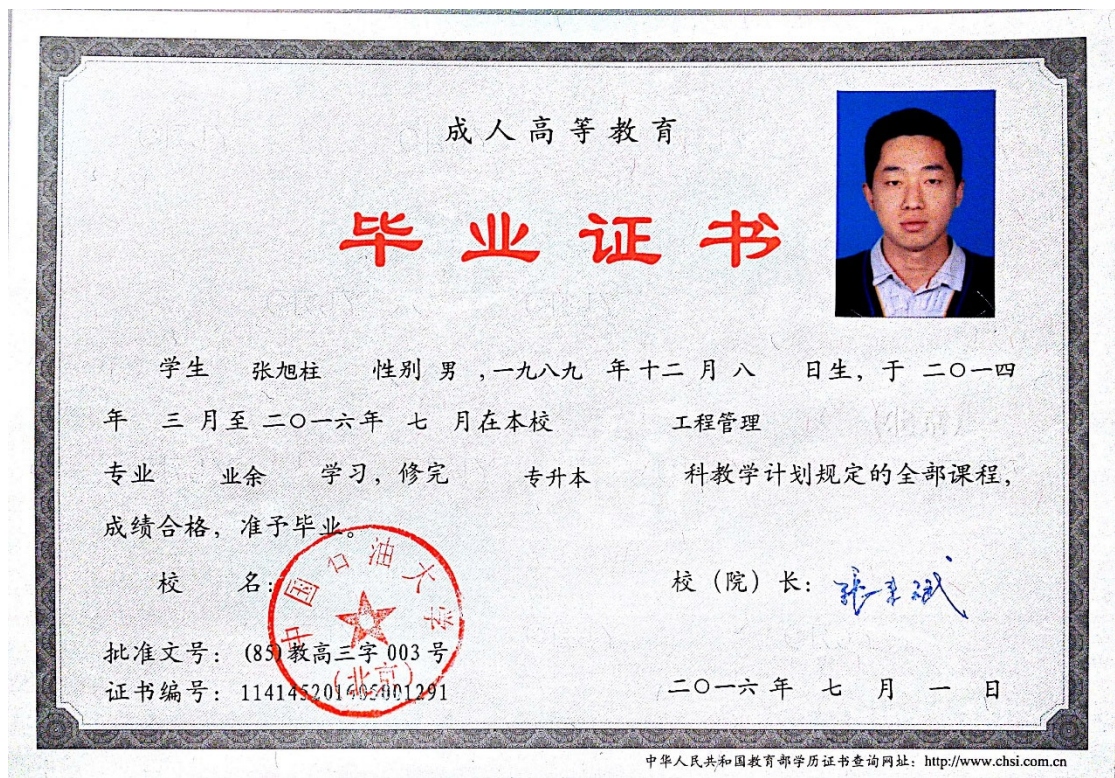 成人高等教育
毕业证书
学生 张旭柱 性别 男 ,一九八九 年 十二 月 八 日生，于 二〇一四
年 三 月至 二〇一六年 七 月在本校 工程管理
专业 业余 学习，修完 专升本 科教学计划规定的全部课程，
成绩合格，准予毕业。
校 名：
中国石油大学
(北京)
校（院）长：
批准文号： (85)教高三字 003 号
证书编号：
二〇一六 年 七 月 一 日
中华人民共和国教育部学历证书查询网址：http://www.chsi.com.cn